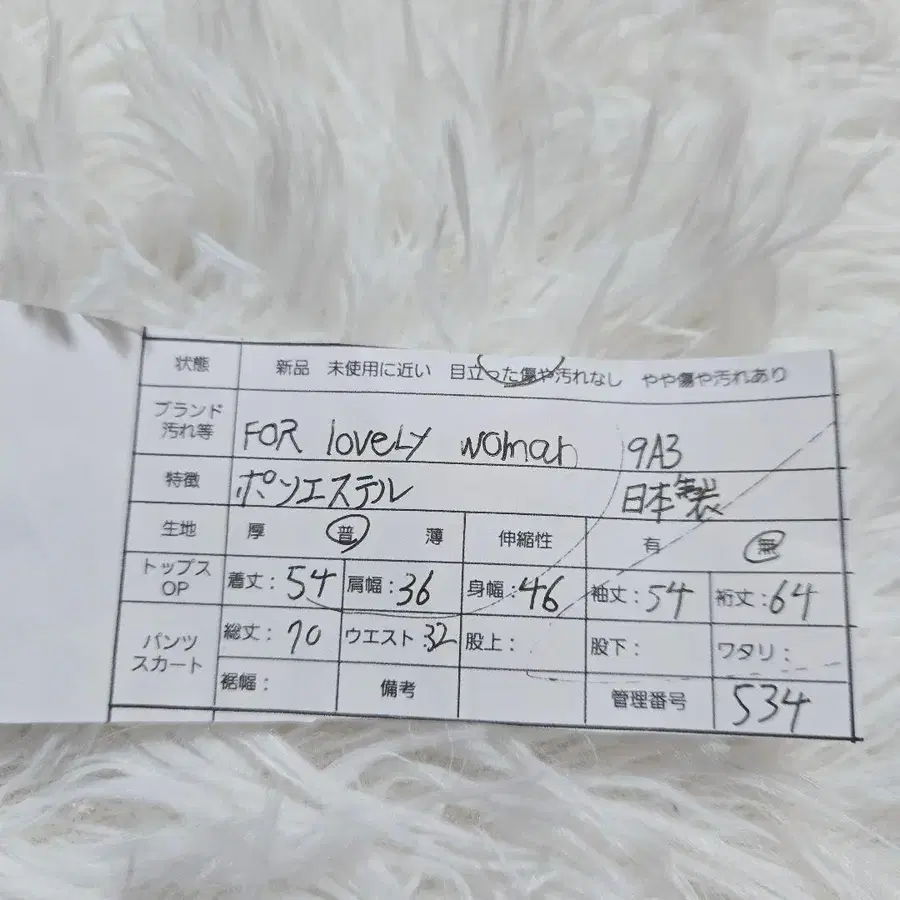 状態 新品 未使用に近い 目立った傷や汚れなし やや傷や汚れあり
ブランド
汚れ等 FOR lovely woman 9A3
特徴 ポリエステル 日本製
生地 厚 普 薄 伸縮性 有 無
トップス
OP 着丈:54 肩幅:36 身幅:46 袖丈:54 裄丈:64
パンツ
スカート 総丈:70 ウエスト:32 股上: 股下: ワタリ:
裾幅: 備考 管理番号 534